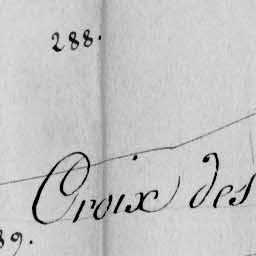 288.
Croix des
89.